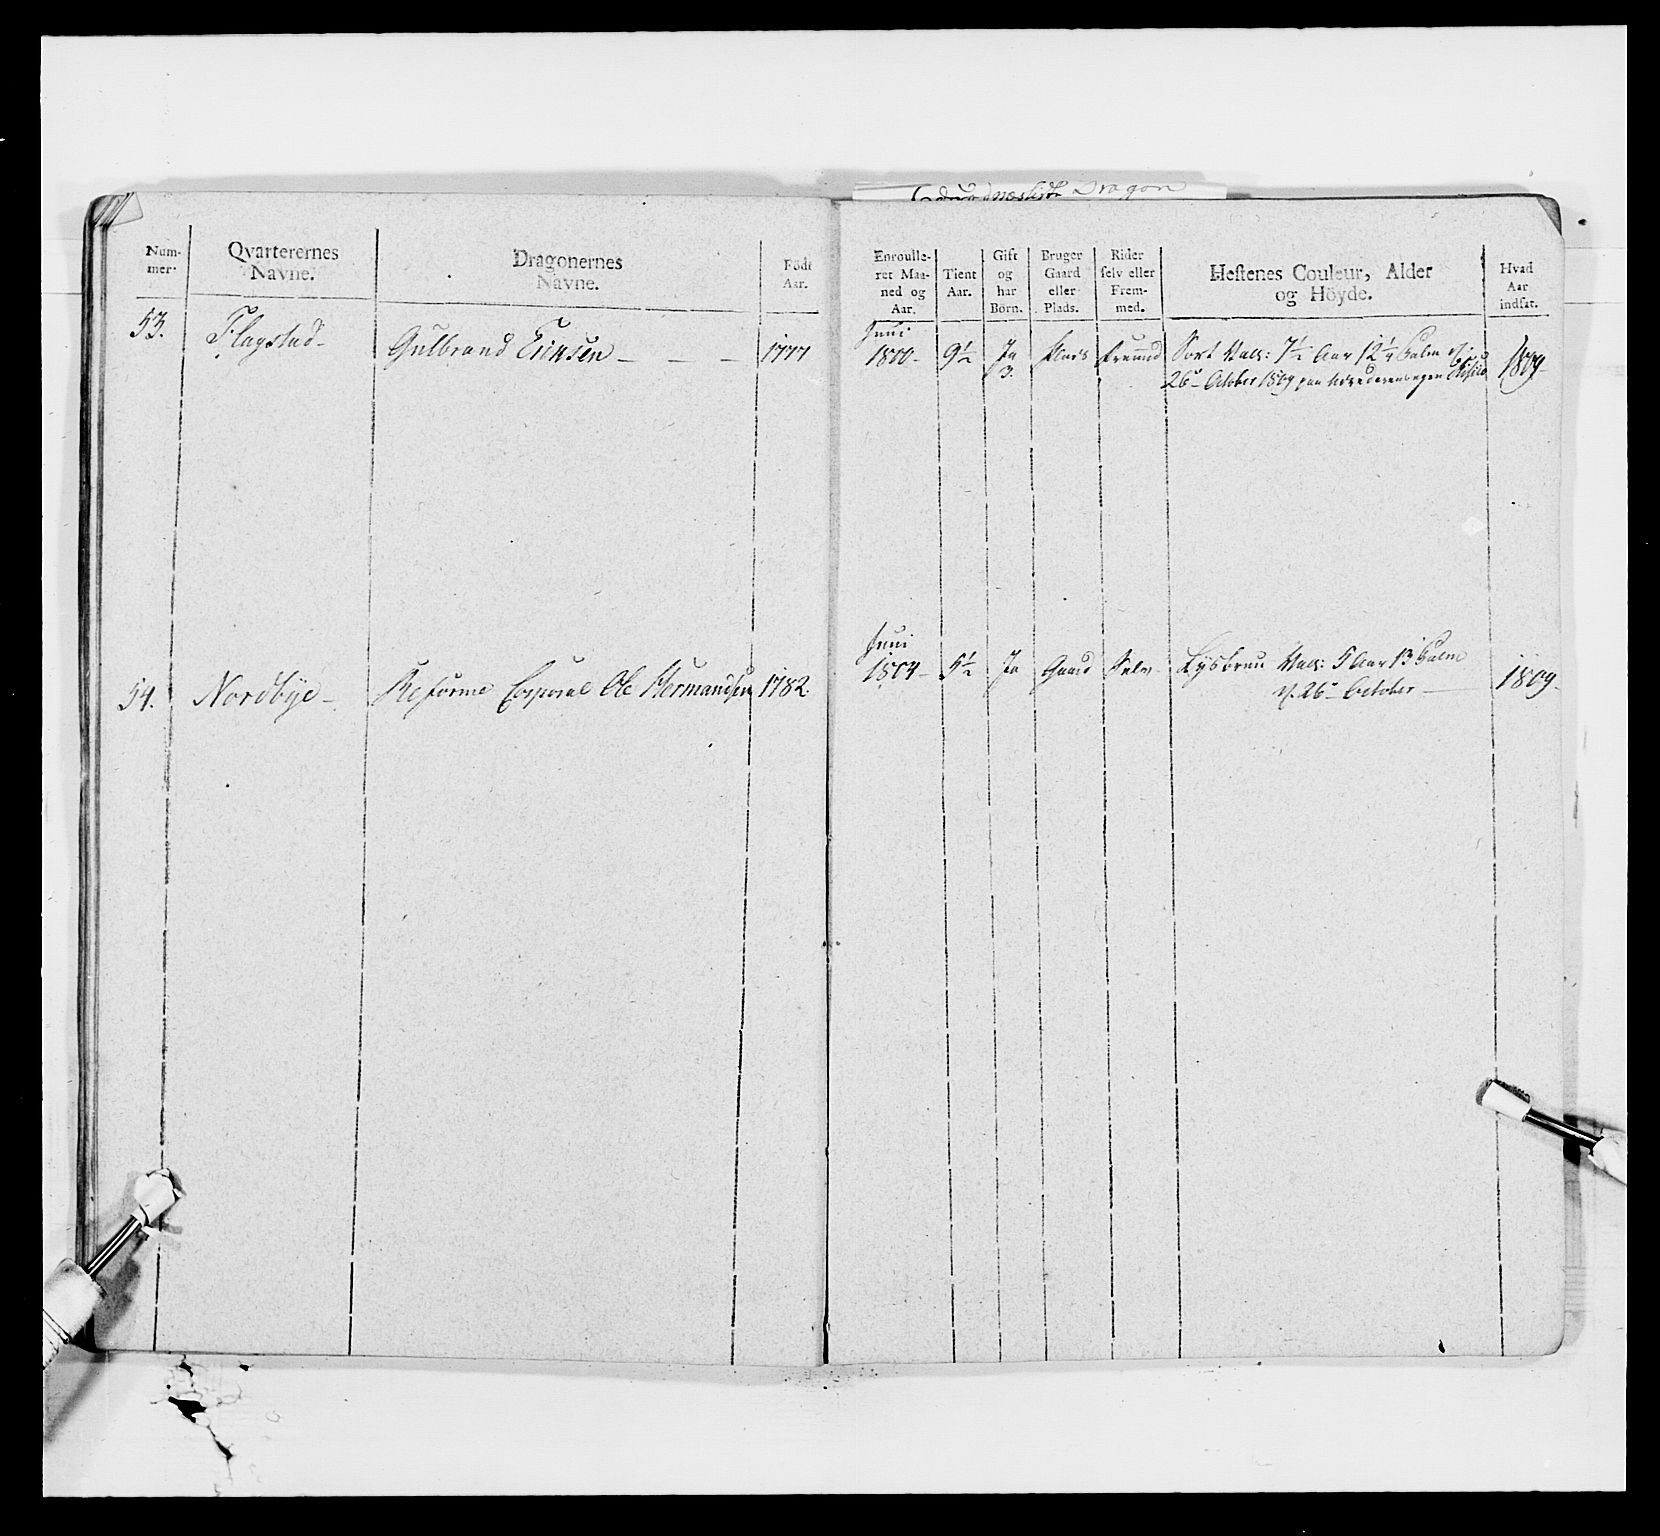 Dragon
Num-
mer.
Qvarterernes
Navne.
Dragonernes
Navne.
Födt
Aar.
Enroulle-
ret Maa-
ned og
Aar.
Tient
Aar.
Gift
og
har
Börn.
Bruger
Gaard
eller
Plads.
Rider
selv eller
Frem-
med.
Hestenes Couleur, Alder
og Höyde.
Hvad
Aar
indsat.
53. Flagstad - Gulbrand Eriksen - - - 1777
Juni
1800 - 9½ Ja
3. Plads Fremmed Sort Vall: 7½ Aar 12¼ Palm
26 October 1809 paa 1809
54. Nordbye - Reforme Corporal Ole Hermandsen 1782
Juni
1804 - 5½ Ja Gaard Selv Lysbrun Vall: 5 Aar 13 Palm
26 October 1809